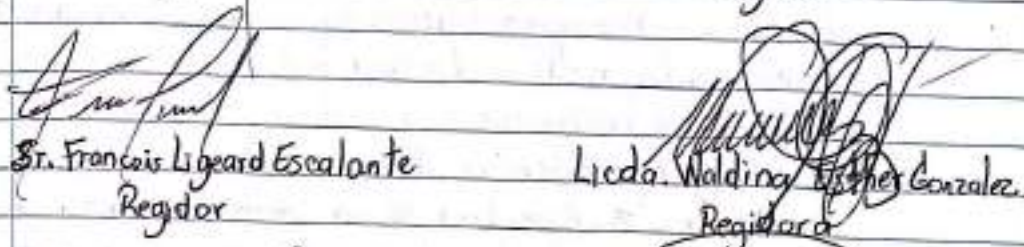 Sr. Francois Ligeard Escalante
Regidor
Licda. Walding Esther Gonzalez.
Regidora